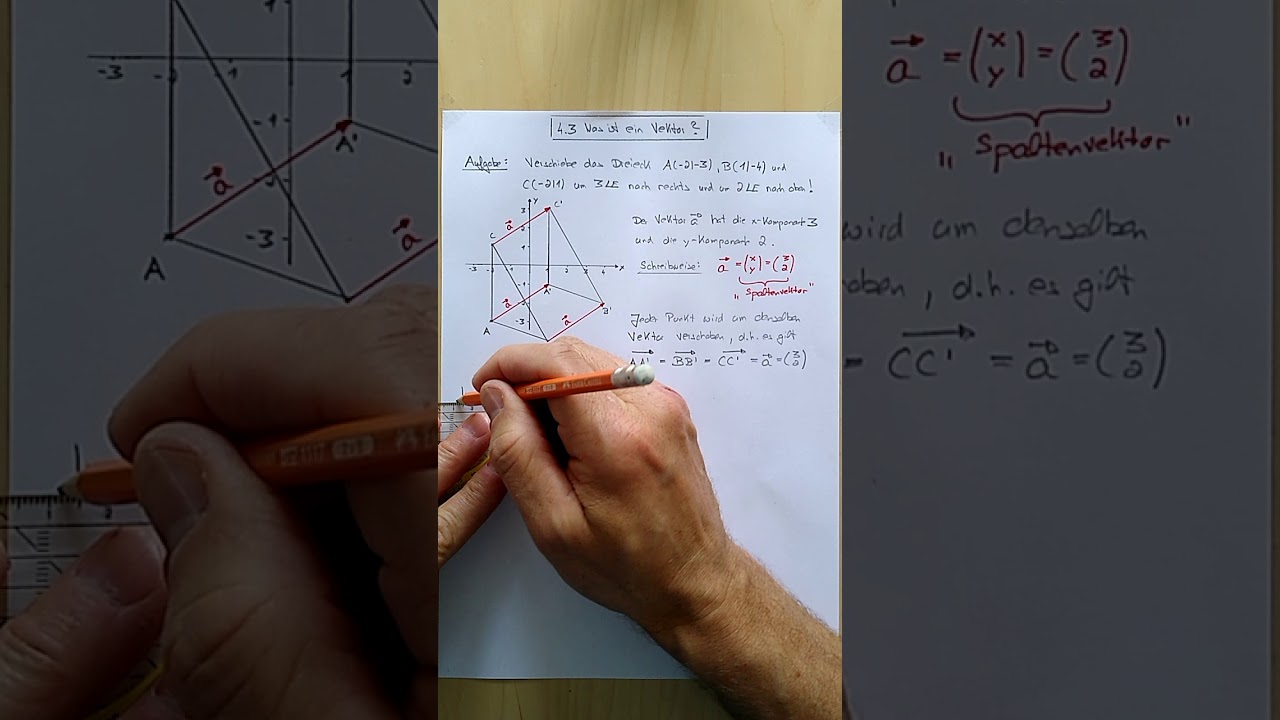 4.3 Was ist ein Vektor?
Aufgabe: Verschiebe das Dreieck A(-2|-3), B(1|-4) und
C(-2|1) um 3LE nach rechts und um 2LE nach oben!
Der Vektor a⃗ hat die x-Komponente 3
und die y-Komponente 2.
Schreibweise: a⃗ = (x y) = (3 2)
"Spaltenvektor"
Jeder Punkt wird um denselben
Vektor verschoben, d.h. es gilt
AA' = BB' = CC' = a⃗ = (3 2)
y
3
C'
a⃗
C
1
-3
1
2
3
4
x
-1
A'
a⃗
a⃗
B'
-3
A
-3
-2
-1
1
2
-1
A'
a⃗
a⃗
-3
A
a⃗ = (x y) = (3 2)
"Spaltenvektor"
wird um denselben
oben, d.h. es gilt
= CC' = a⃗ = (3 2)